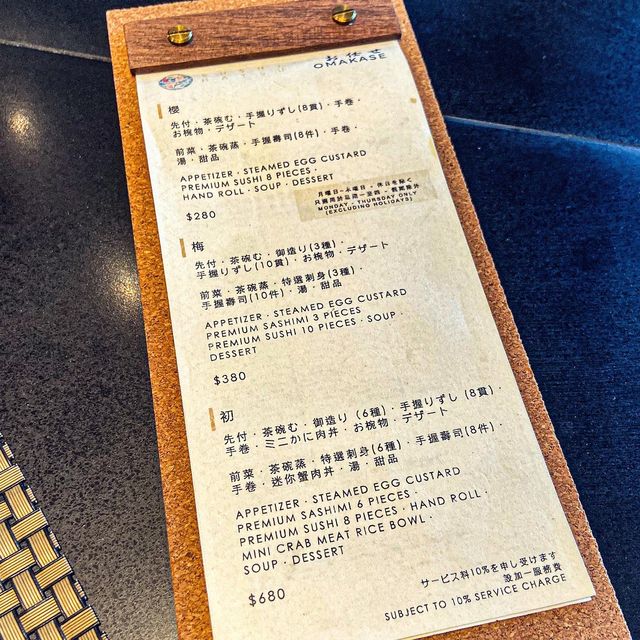 お任せ
OMAKASE
櫻
先付・茶碗む・手握りずし(8貫)・手巻・
お椀物・デザート
前菜・茶碗蒸・手握壽司(8件)・手巻・
湯・甜品
APPETIZER · STEAMED EGG CUSTARD
PREMIUM SUSHI 8 PIECES ·
HAND ROLL · SOUP · DESSERT
$280
月曜日-木曜日・休日を除く
只適用於星期一至四・假期除外
MONDAY - THURSDAY ONLY
(EXCLUDING HOLIDAYS)
梅
先付・茶碗む・御造り(3種)・
手握りずし(10貫)・お椀物・デザート
前菜・茶碗蒸・特選刺身(3種)・
手握壽司(10件)・湯・甜品
APPETIZER · STEAMED EGG CUSTARD
PREMIUM SASHIMI 3 PIECES
PREMIUM SUSHI 10 PIECES · SOUP ·
DESSERT
$380
初
先付・茶碗む・御造り(6種)・手握りずし(8貫)・
手巻・ミニかに肉丼・お椀物・デザート
前菜・茶碗蒸・特選刺身(6種)・手握壽司(8件)・
手巻・迷你蟹肉丼・湯・甜品
APPETIZER · STEAMED EGG CUSTARD
PREMIUM SASHIMI 6 PIECES ·
PREMIUM SUSHI 8 PIECES · HAND ROLL ·
MINI CRAB MEAT RICE BOWL ·
SOUP · DESSERT
$680
サービス料10%を申し受けます
設加一服務費
SUBJECT TO 10% SERVICE CHARGE